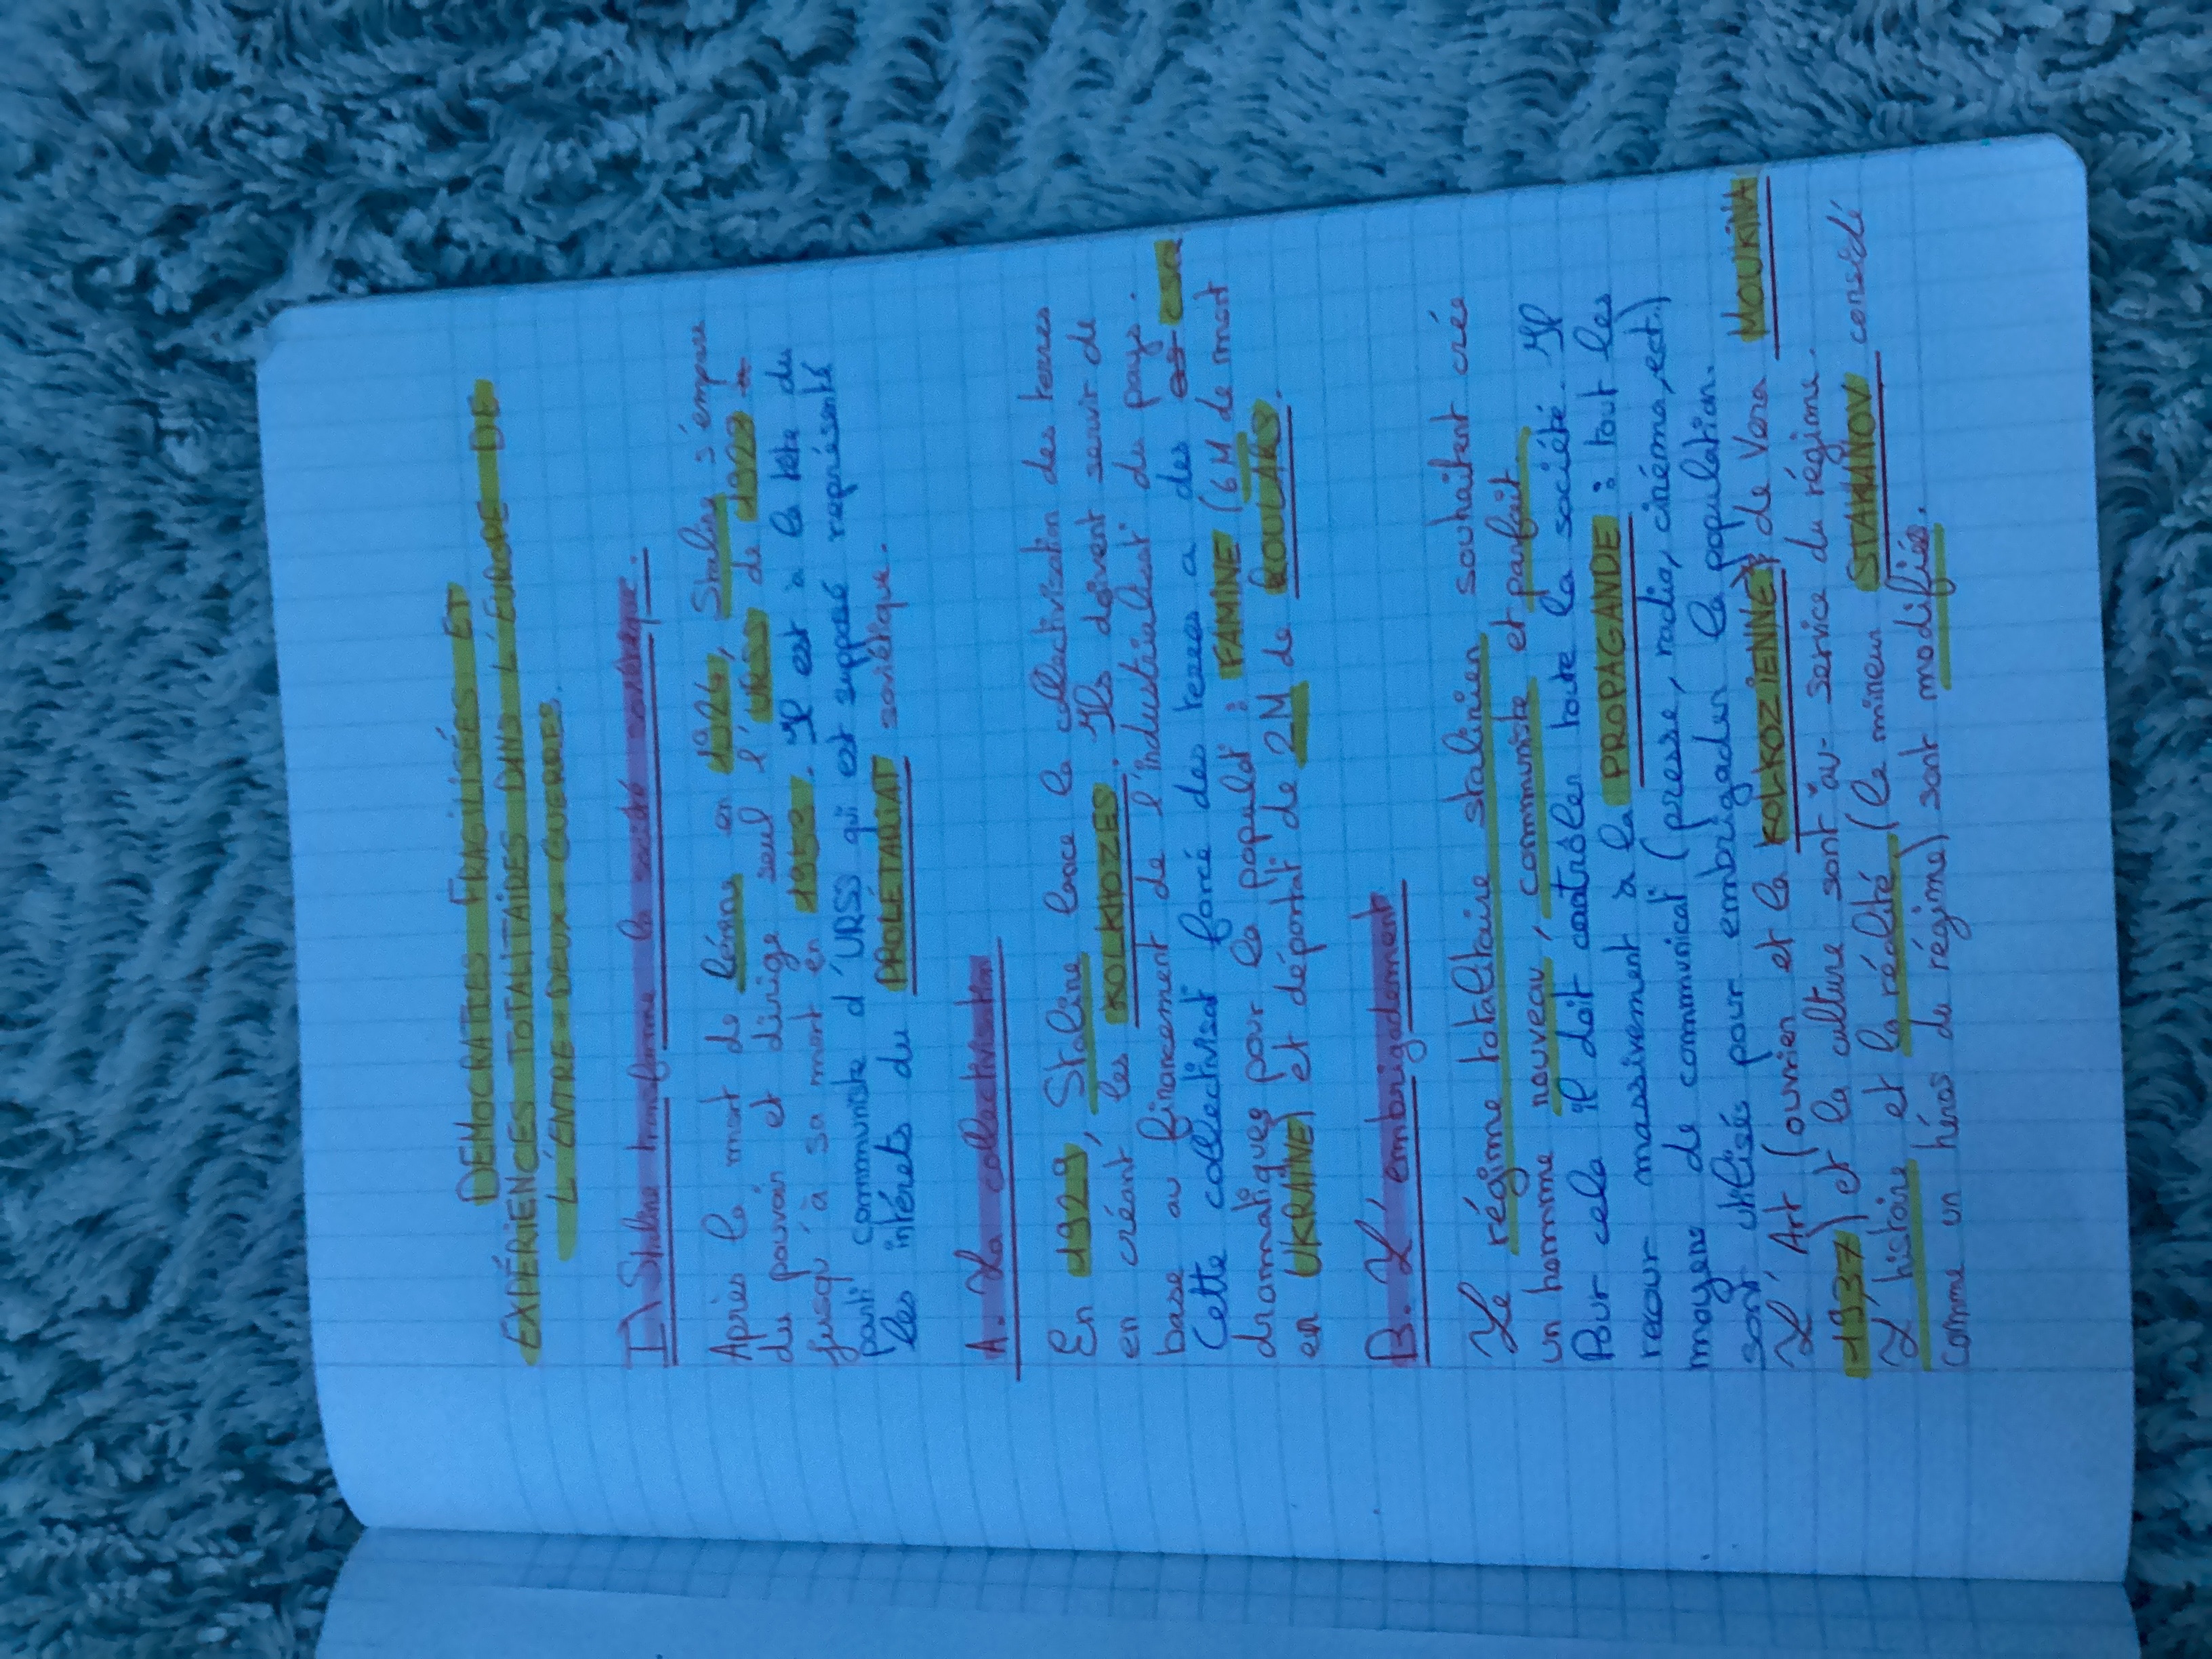 DEMOCRATIES FRAGILISÉES ET
EXPÉRIENCES TOTALITAIRES DANS L'EUROPE DE
L'ENTRE-DEUX-GUERRES.
I\ Staline transforme la société soviétique.
Après la mort de Lénine en 1924, Staline s'empare
du pouvoir et dirige seul l'URSS de 1928
jusqu'à sa mort en 1953. Il est à la tête du
parti communiste d'URSS qui est supposé représenté
les intérêts du PROLÉTARIAT soviétique.
A. La collectivisation
En 1929, Staline lance la collectivisation des terres
en créant les KOLKHOZES. Ils doivent servir de
base au financement de l'industrialisat° du pays.
Cette collectivisat° forcé des terres a des csq
dramatiques pour la populat° : FAMINE (6M de mort
en UKRAINE) et déportat° de 2M de KOULAKS.
B. L'embrigadement
Le régime totalitaire stalinien souhaitent crée
un homme nouveau, communiste et parfait
Pour cela il doit contrôler toute la société. Il
recour massivement à la PROPAGANDE : tout les
moyens de communicat° (presse, radio, cinéma, ect.)
sont utilisés pour embrigader la population.
L'Art (ouvrier et la KOLKOZIENNE, de Vera MOUKINA
1937) et la culture sont au service du régime.
L'histoire et la réalité (le mineur STAKANOV considé
comme un héros du régime) sont modifiés.